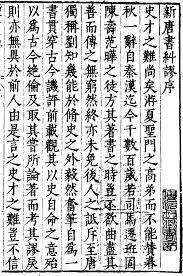 新唐書糾謬序
史才之難尚矣游夏聖門之高弟而不能贊春
秋一辭自秦漢迄今千數百歲若司馬遷班固
陳壽范曄之徒方其著書之時豈不欲曲盡其
善而傳之無窮然終亦未免後人之詆斥至唐
獨稱劉知幾能於修史之外毅然奮筆自為一
書貫穿古今譏評前載觀其以史自命之意殆
以為古今絕倫及取其嘗所論著而考其謬戾
則亦無異於前人由是言之史才之難豈不信